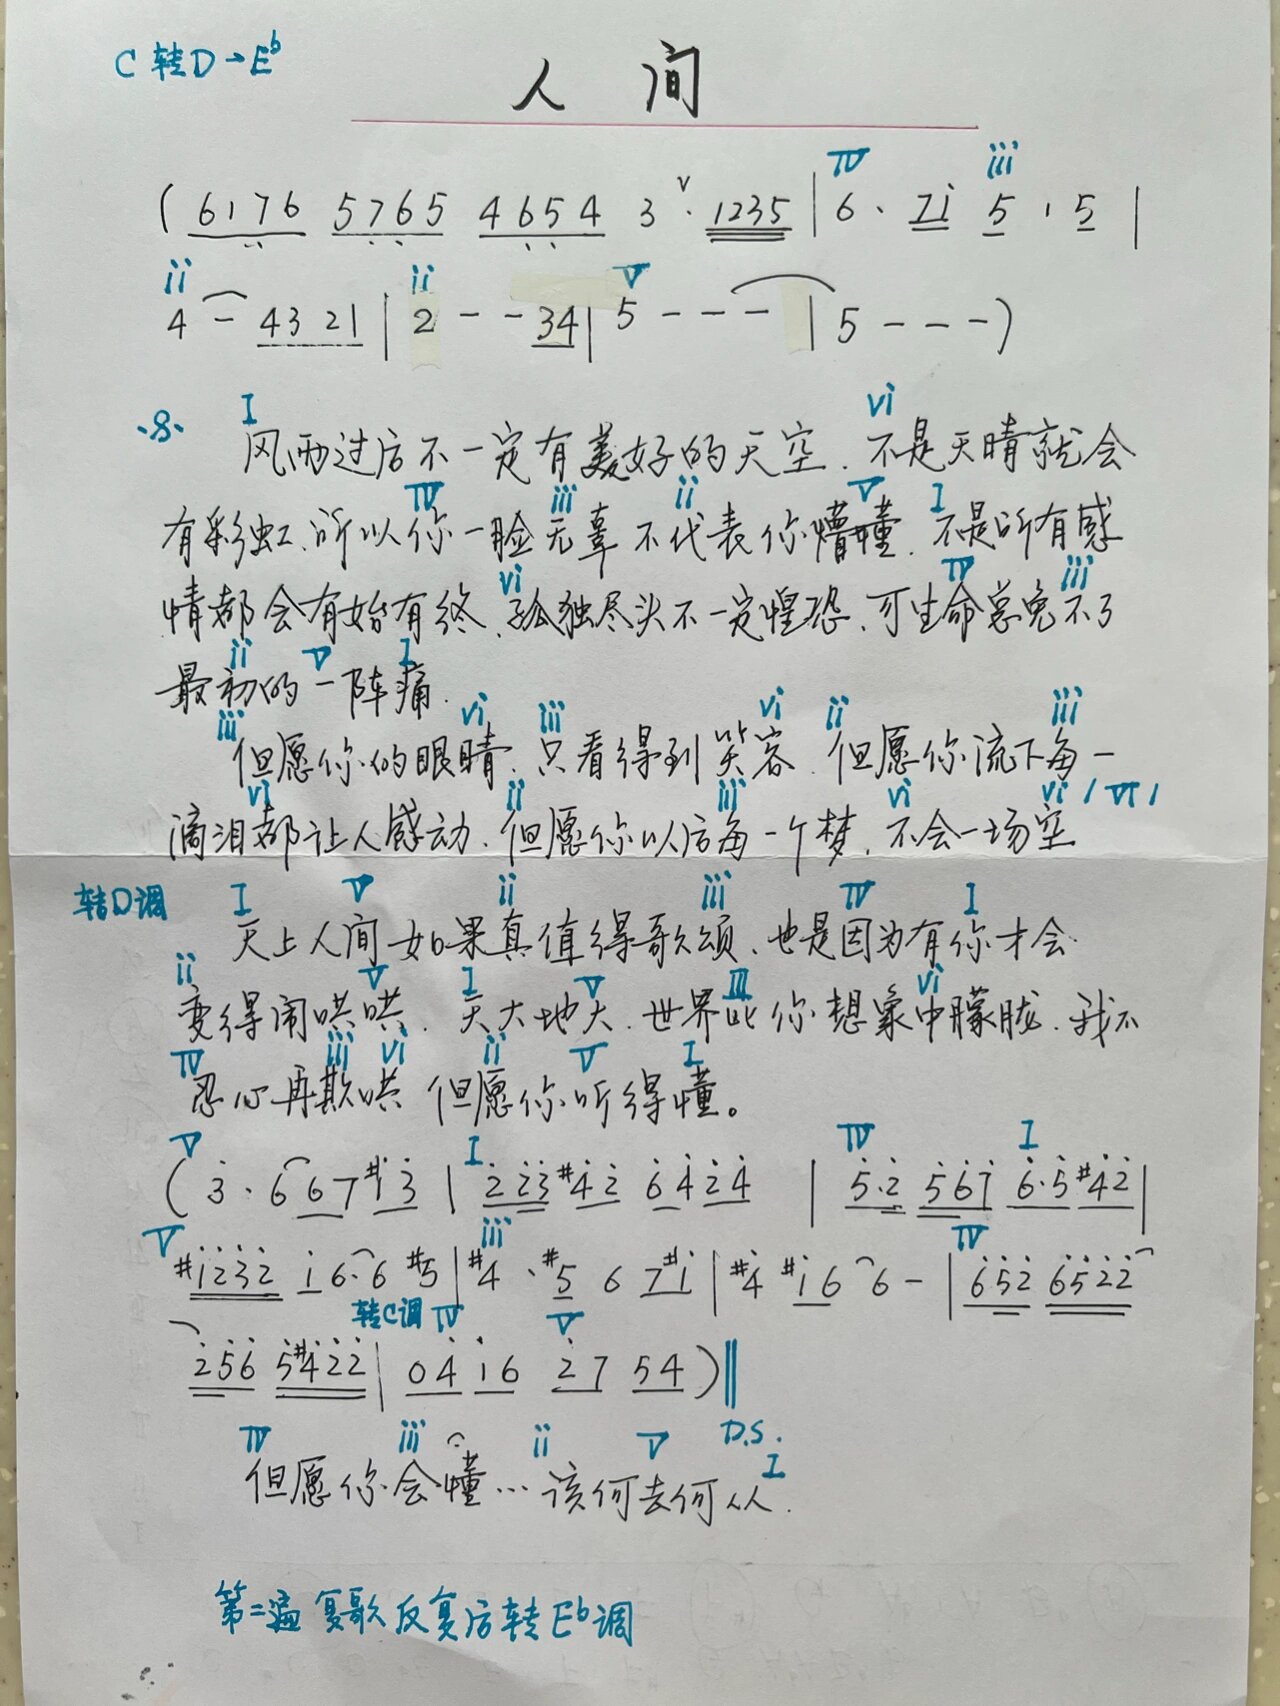 C 转D→E♭
人 间
IV iii
( 6176 5765 4654 3 ∨ · 1235 | 6 · 7i 5 · 5 |
ii ii V
4 - 43 21 | 2 - - 34 | 5 - - - | 5 - - - )
·S· I vi
风雨过后不一定有美好的天空、不是天晴就会
IV iii ii V I
有彩虹、所以你一脸无辜不代表你懵懂、不是所有感
vi IV iii
情都会有始有终、孤独尽头不一定惶恐、可生命总免不了
ii V I
最初的一阵痛、
iii vi iii vi ii iii
但愿你的眼睛、只看得到笑容、但愿你流下每一
vi ii iii vi vi / VI /
滴泪都让人感动、但愿你以后每一个梦、不会一场空
转D调 I V ii iii IV I
天上人间如果真值得歌颂、也是因为有你才会
ii V I V III vi
变得闹哄哄、天大地大、世界比你想象中朦胧、我不
IV iii vi ii V I
忍心再欺哄 但愿你听得懂。
V I IV I
( 3 · 6 6 7 #i 3 | 2 2 3 #4 2 6 4 2 4 | 5·2 5 6 7 6·5 #4 2 |
V iii IV
#1 2 3 2 1 6·6 #5 | #4 · #5 6 7 #i | #4 #i 6 6 - | 6 5 2 6 5 2 2
转C调 IV V
2 5 6 5 #4 2 2 | 0 4 1 6 2 7 5 4 ) ‖
IV iii ii V D.S. I
但愿你会懂…该何去何从、
第二遍 复歌反复后转E♭调